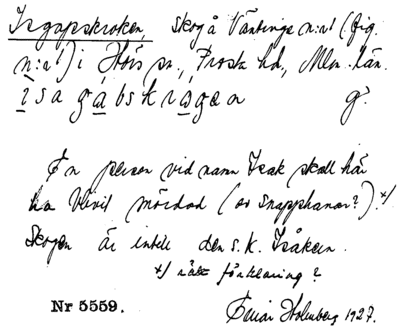 Isgapskroken, skog å Väntinge n:r 1 (fig.
n:r 1) i Hörs sn., Frosta hd, Mlm. län.
isagábskrågen g.
En person vid namn Isak skall här
ha blivit mördad (av snapphanar?).x)
Skogen är intill den s.k. Isåkern.
x) rätt förklaring?
Nr 5559.
Einar Holmberg 1927.